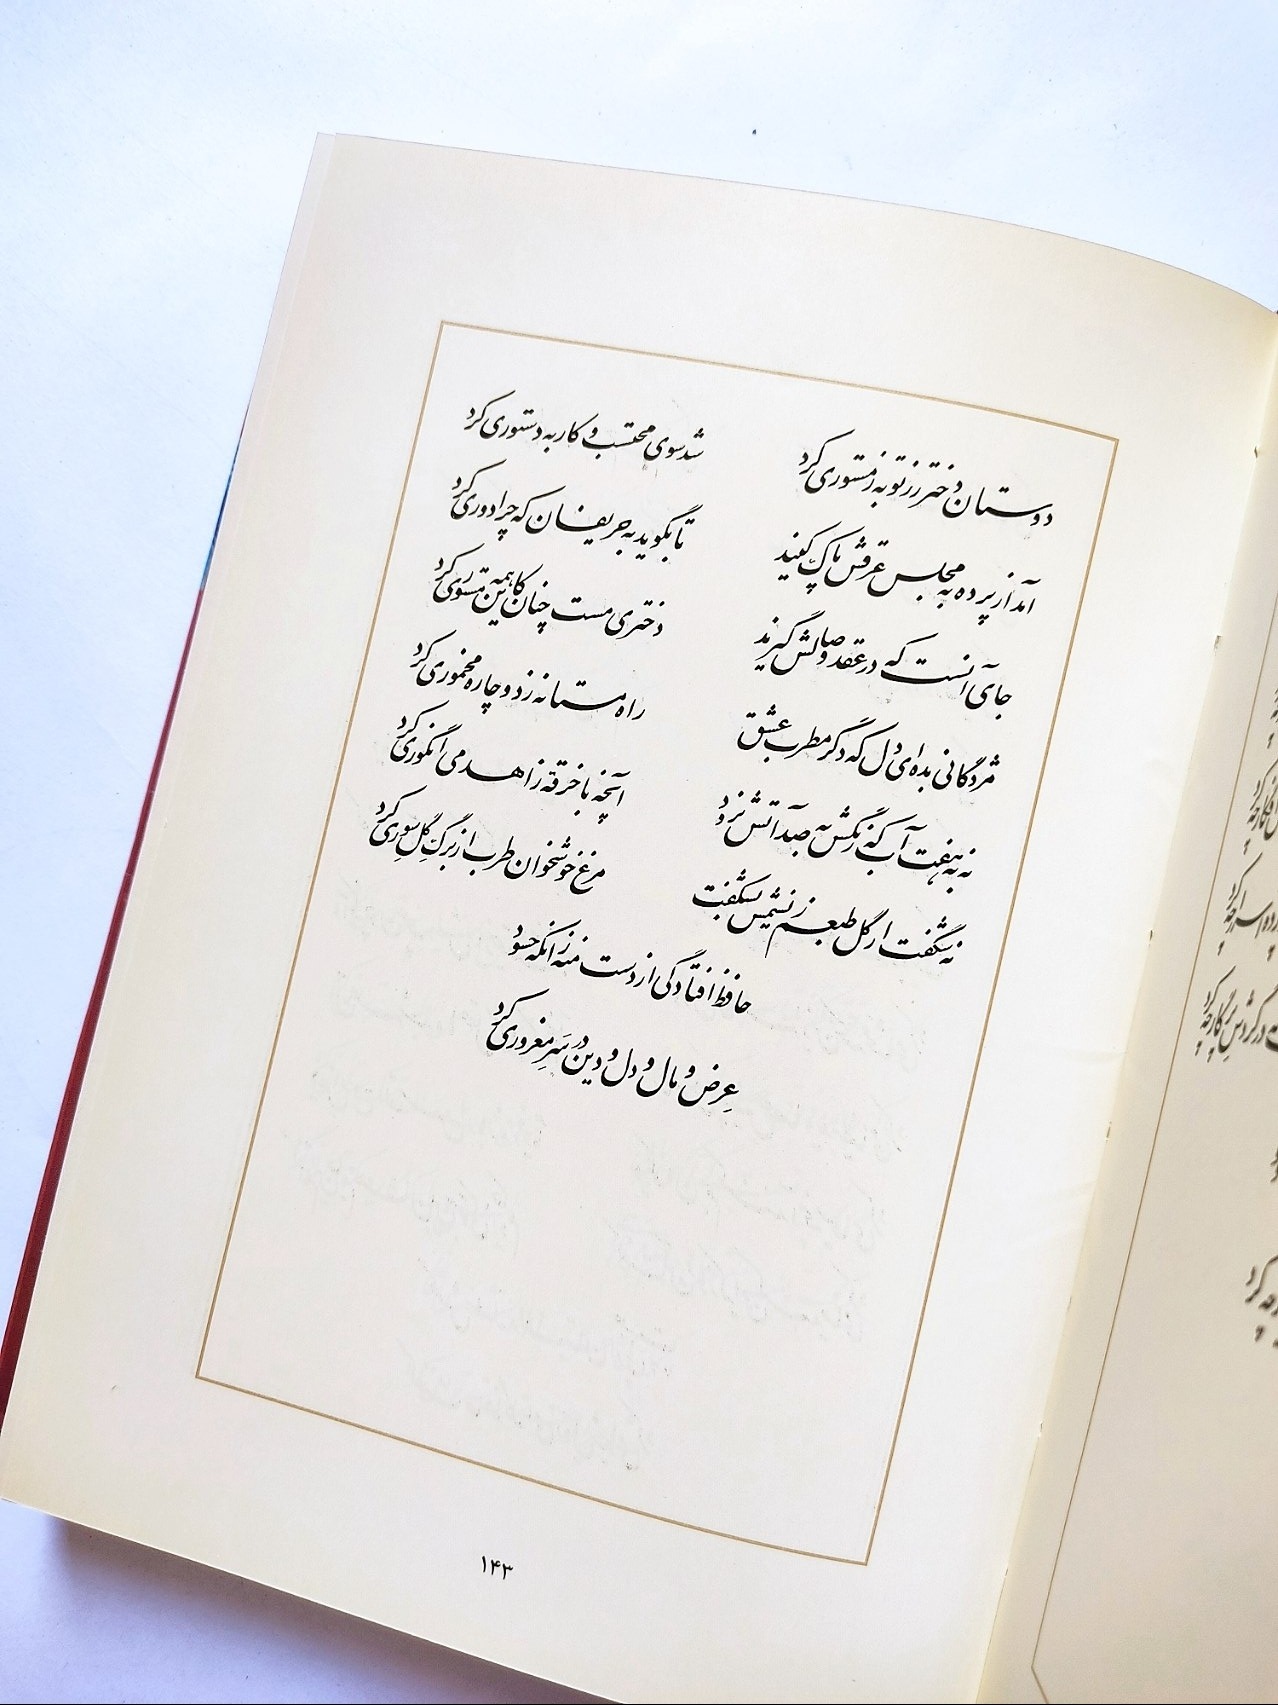 دوستان دختر رز توبه ز مستوری کرد
شد سوی محتسب و کار به دستوری کرد
آمد از پرده به مجلس عرقش پاک کنید
تا بگوید به حریفان که چرا دوری کرد
جای آنست که در عقد وصالش گیرند
دختری مست چنان کاین همه مستوری کرد
مژدگانی بده ای دل که دگر مطرب عشق
راه مستانه زد و چاره مخموری کرد
نه به هفت آب که رنگش به صد آتش نرود
آنچه با خرقه زاهد می انگوری کرد
نه شگفت ار گل طبعم ز نسیمش بشکفت
مرغ خوشخوان طرب از برگ گل سوری کرد
حافظ افتادگی از دست منه زانکه حسود
عِرض و مال و دل و دین در سَرِ مغروری کرد
۱۴۳